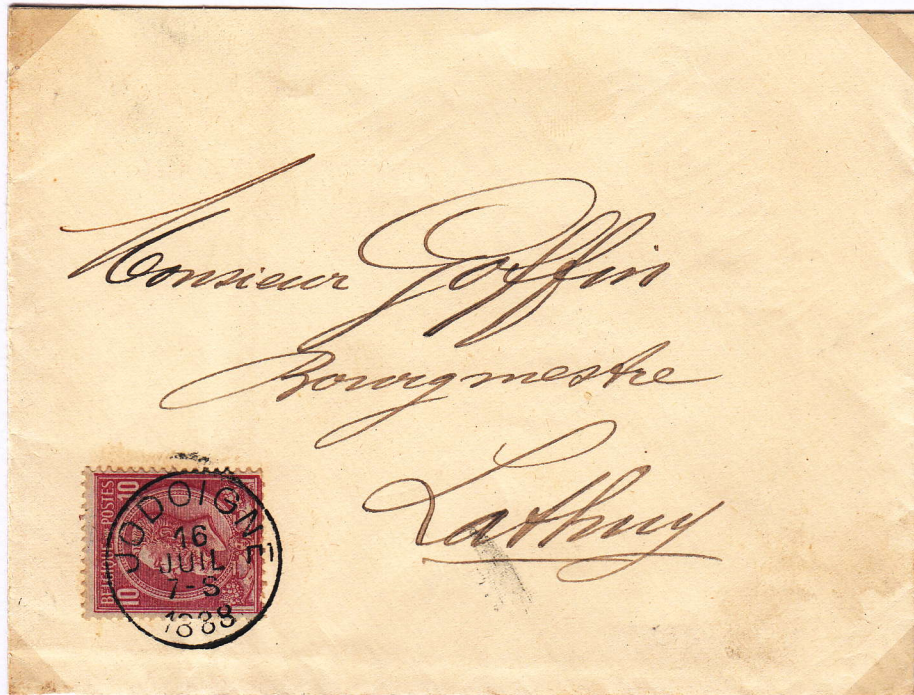 Monsieur Goffin
Bourgmestre
Lathuy
BELGIQUE-POSTES
10
10
JODOIGNE
16
JUIL
7-S
1888